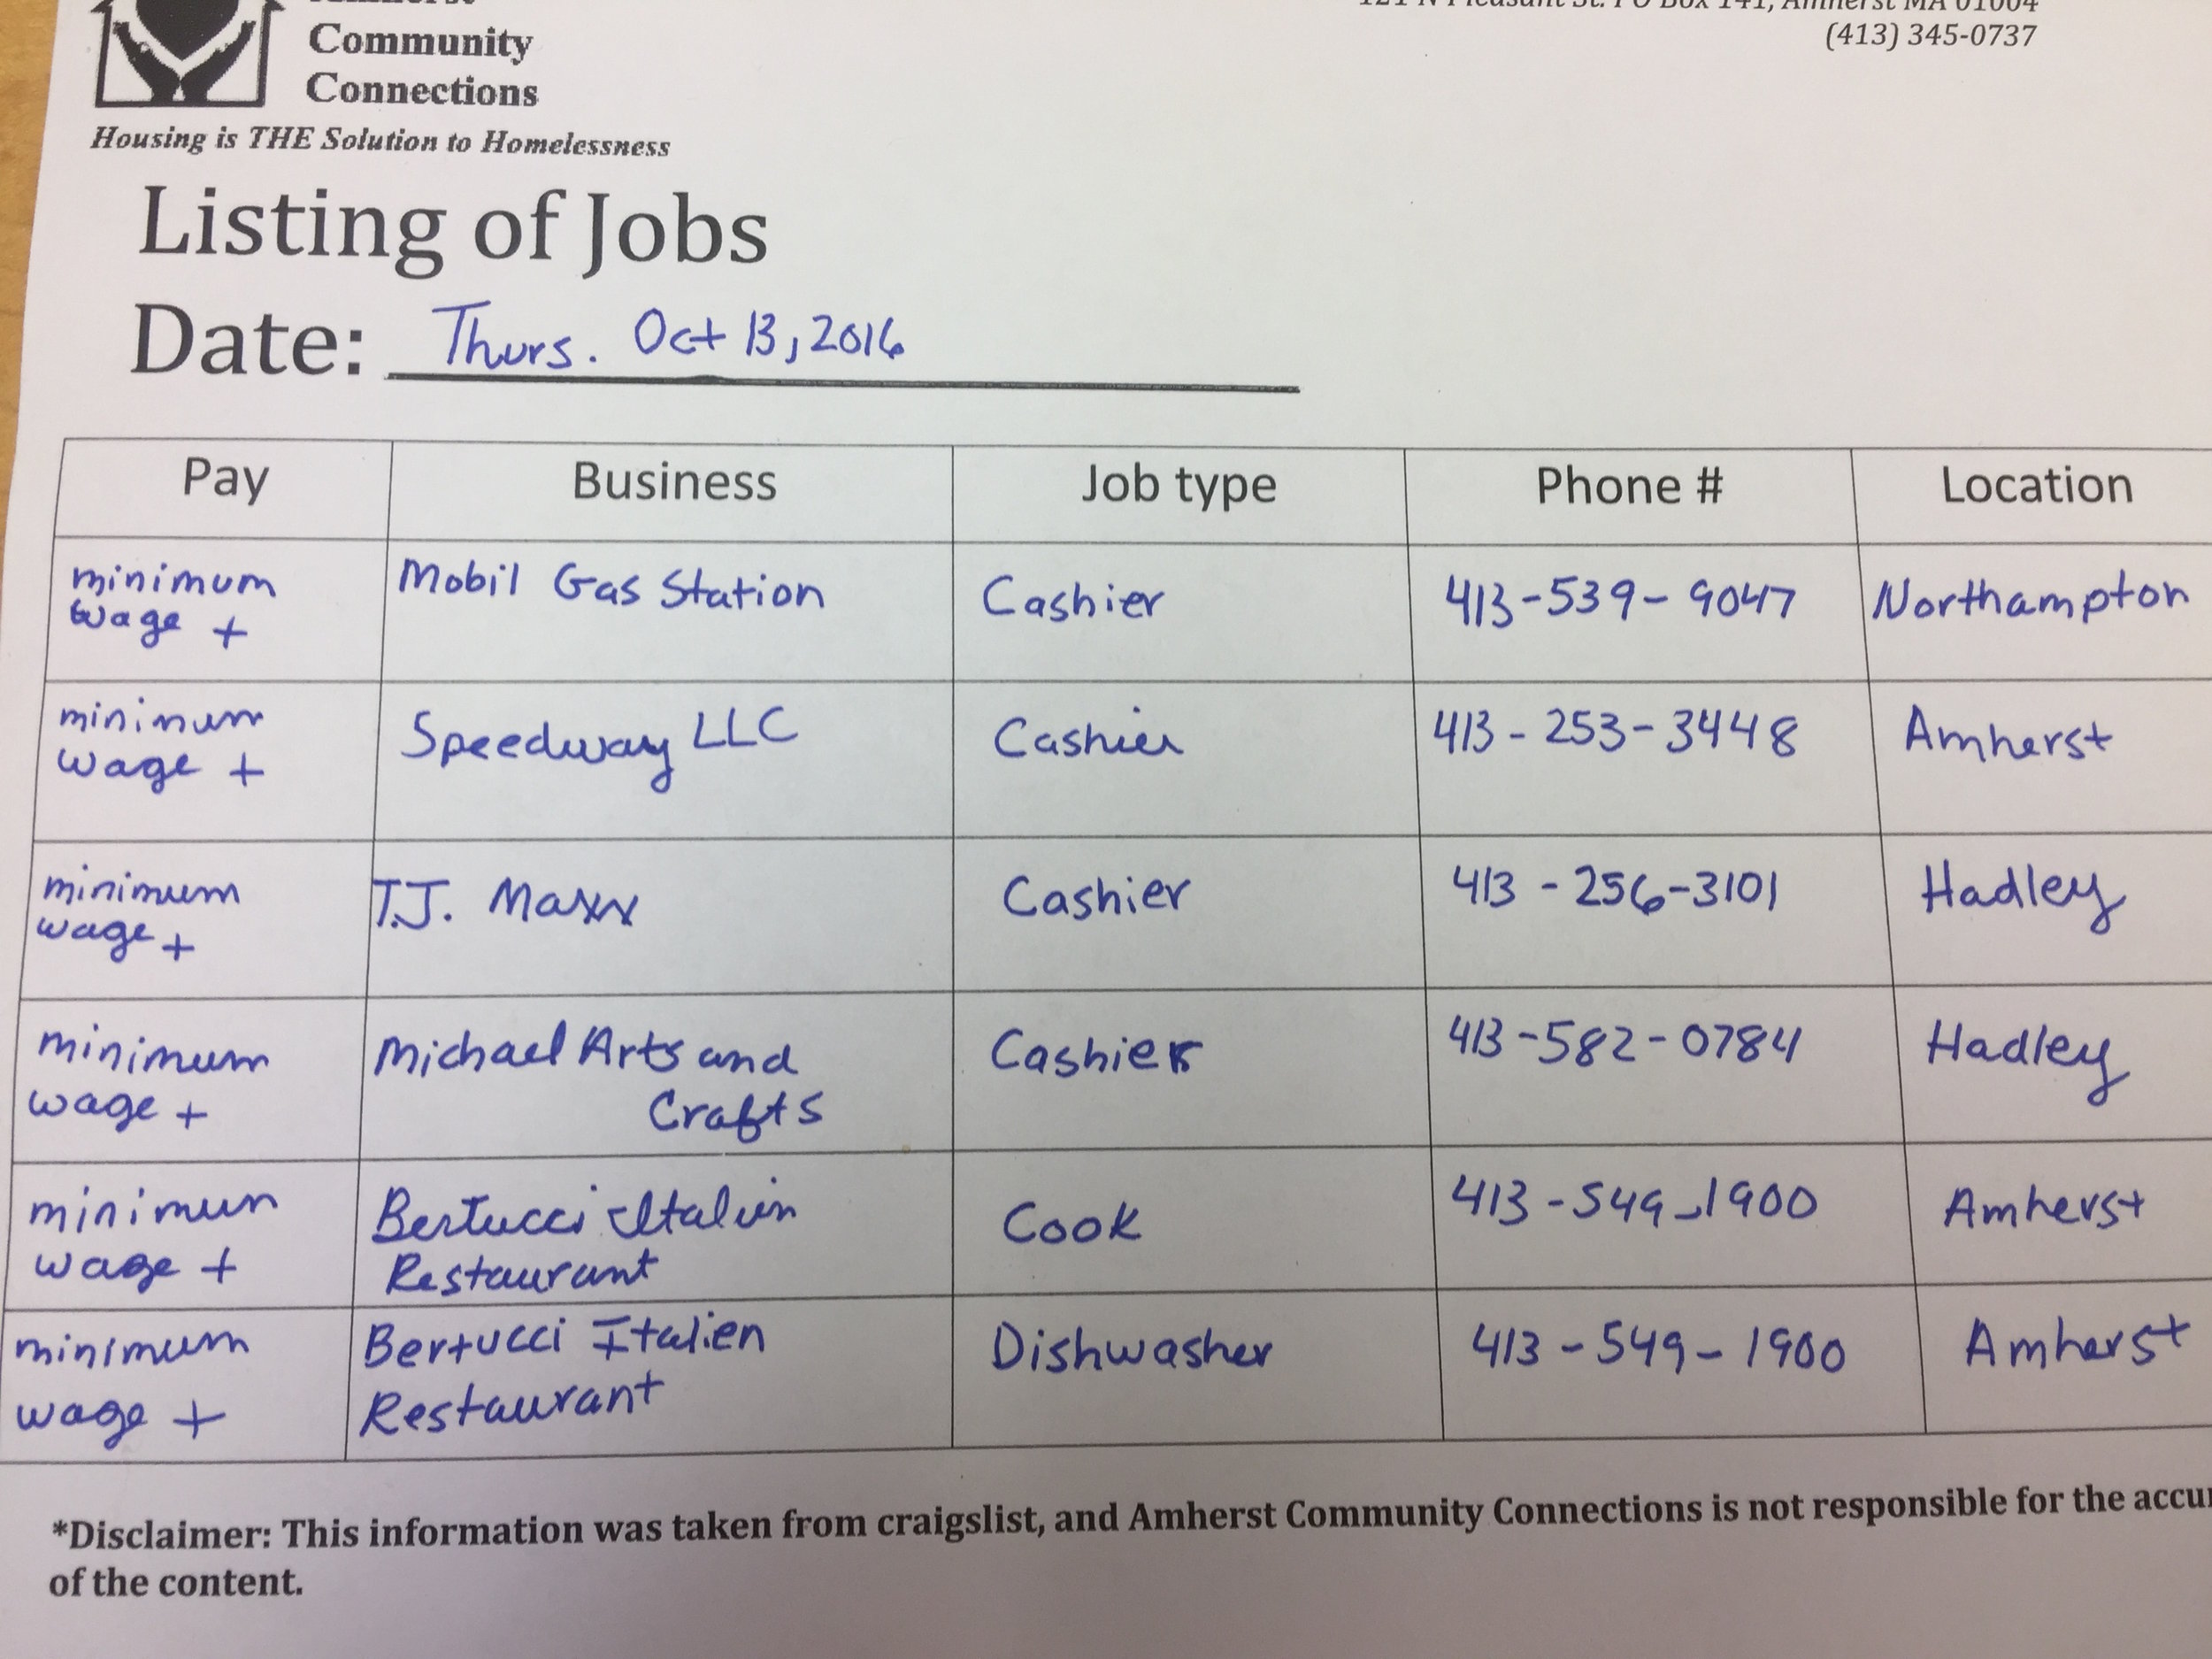 Community
Connections
(413) 345-0737
Housing is THE Solution to Homelessness
Listing of Jobs
Date: Thurs. Oct 13, 2016
Pay Business Job type Phone # Location
minimum
wage + Mobil Gas Station Cashier 413-539-9047 Northampton
minimum
wage + Speedway LLC Cashier 413-253-3448 Amherst
minimum
wage + T.J. Maxx Cashier 413-256-3101 Hadley
minimum
wage + Michael Arts and
Crafts Cashier 413-582-0784 Hadley
minimun
wage + Bertucci Italien
Restaurant Cook 413-549-1900 Amherst
minimum
wage + Bertucci Italien
Restaurant Dishwasher 413-549-1900 Amherst
*Disclaimer: This information was taken from craigslist, and Amherst Community Connections is not responsible for the accur
of the content.